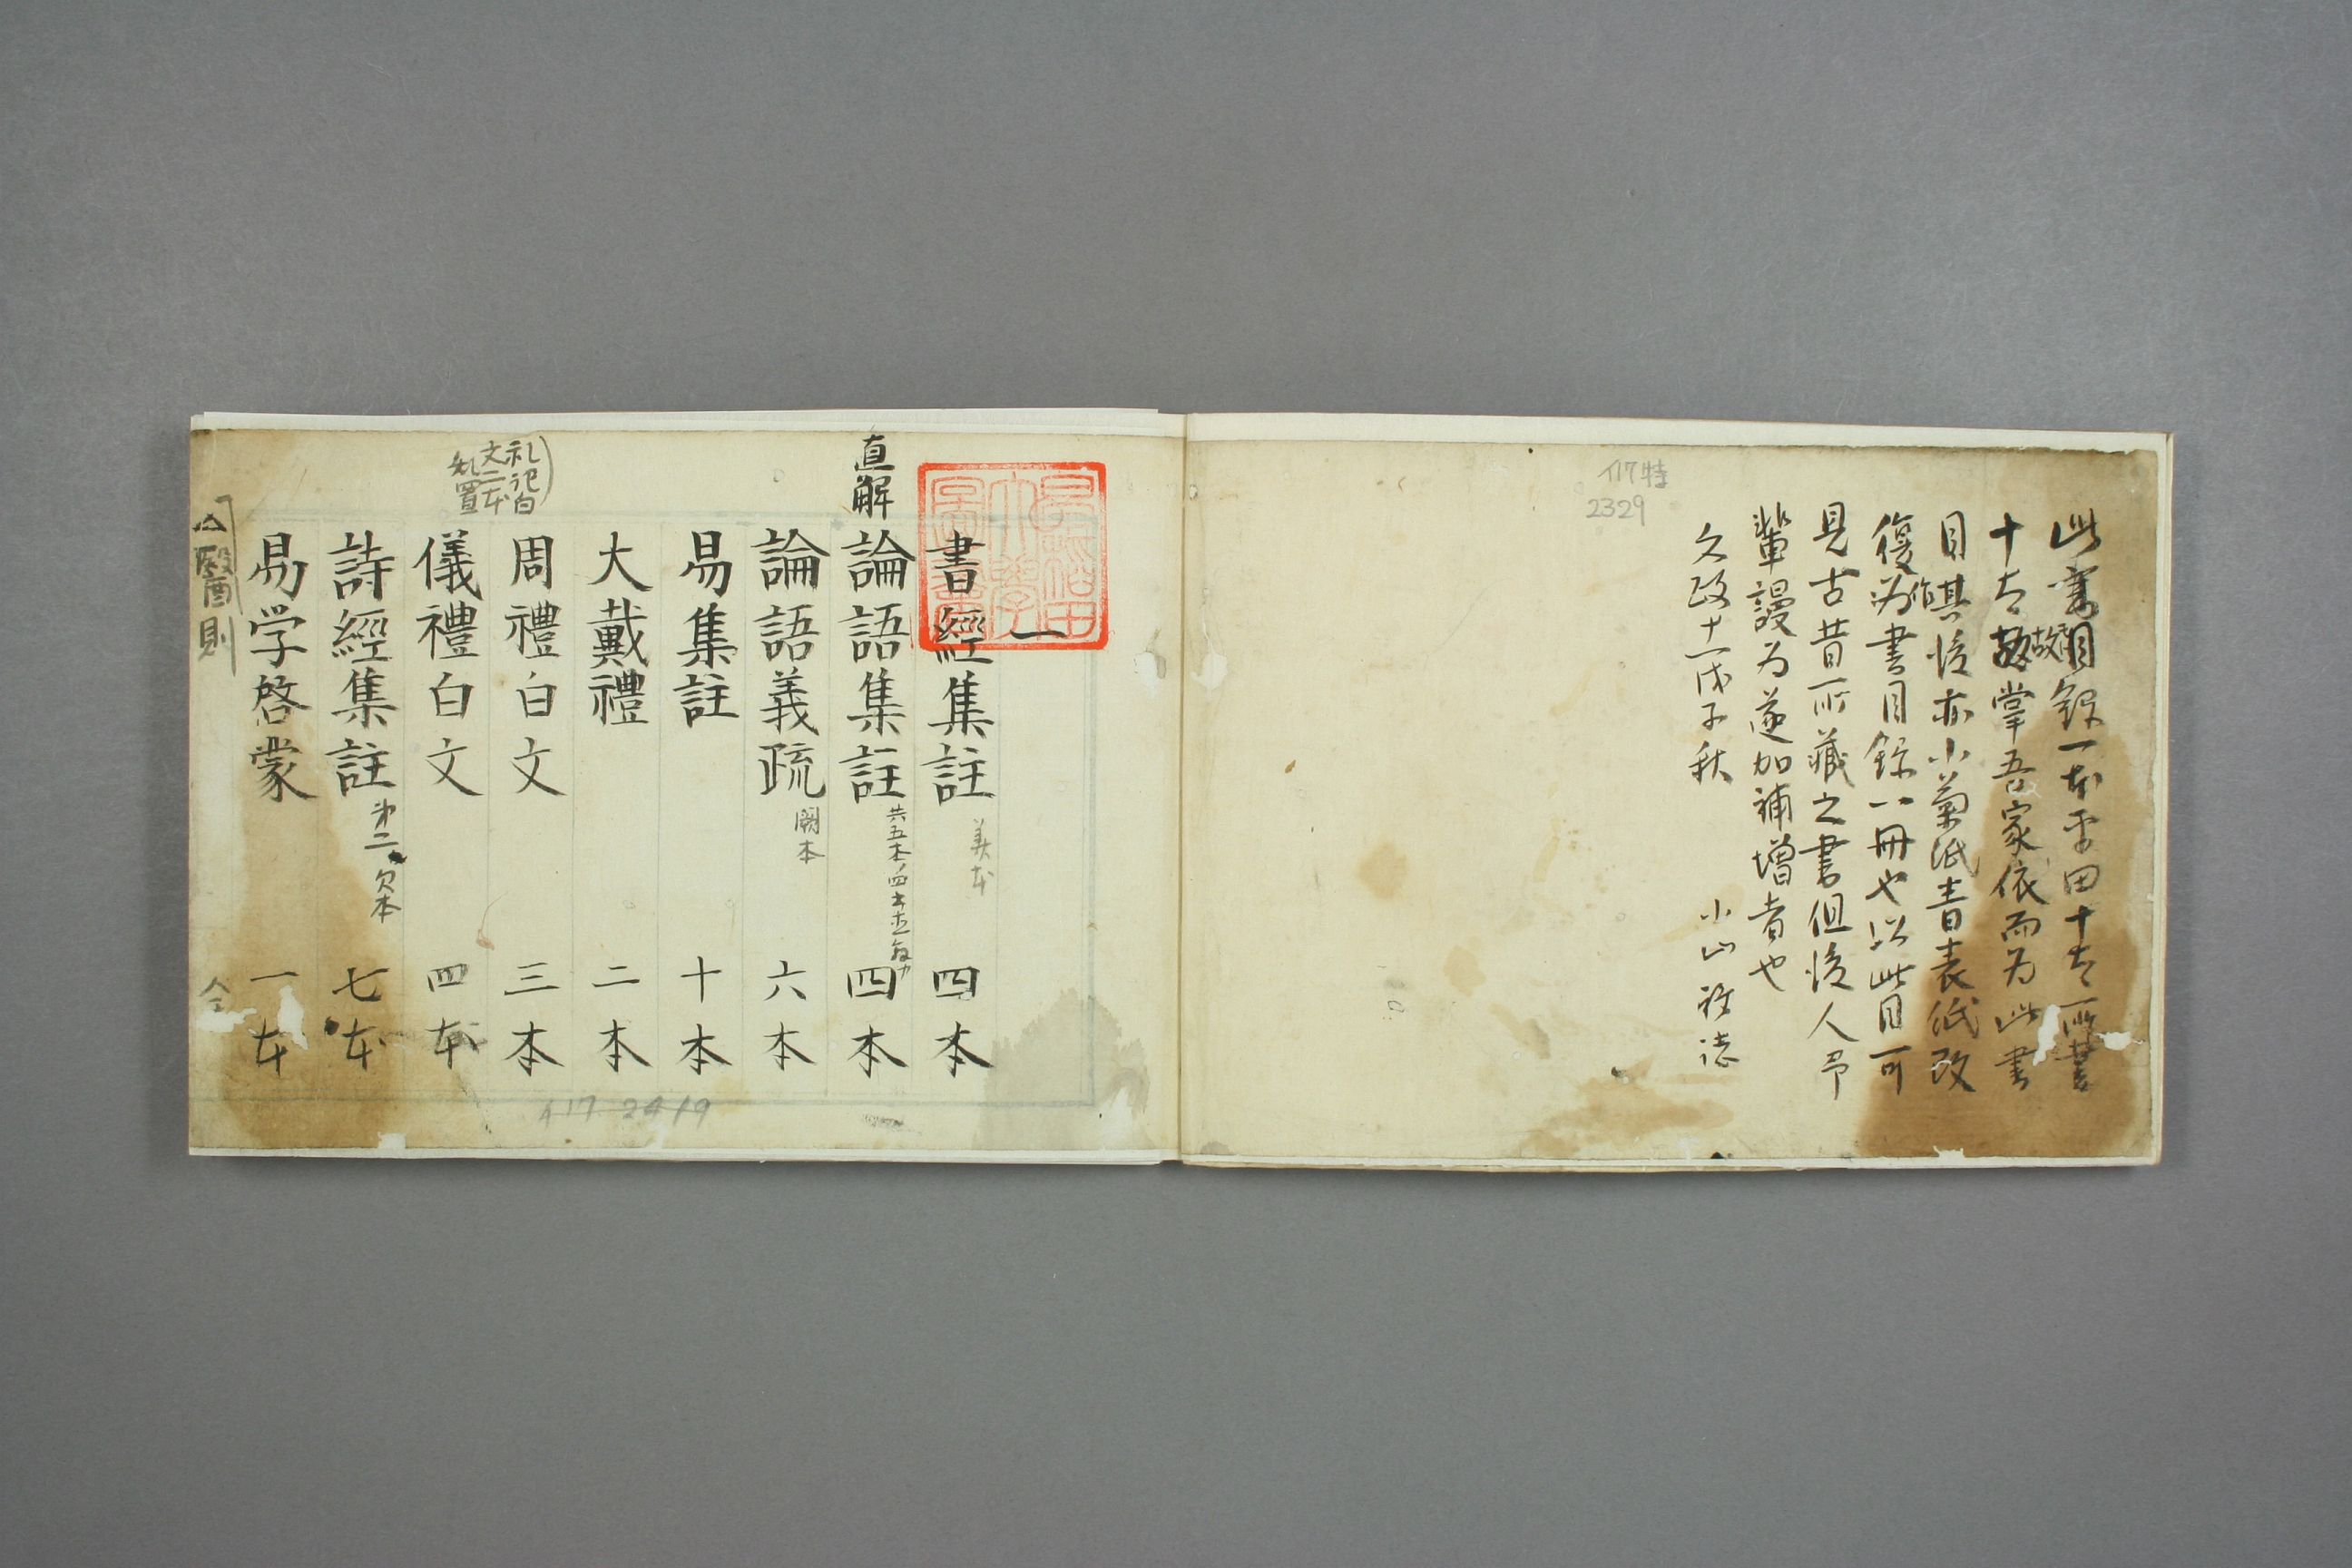 此書目録一本平田十太所書
十太故掌吾家依而為此書
目其後亦小菊紙青表紙改
復作為書目録一冊也以此目可
見古昔所藏之書但後人
輩謾為遂加補増者也
文政十一戊子秋 小山
イ17特
2329
一
書經集註 美本 四本
直解
論語集註 四本
論語義疏 闕本 六本
易集註 十本
大戴禮 二本
周禮白文 三本
礼記白
文二本
儀禮白文 四本
詩經集註 第二欠本 七本
易学啓蒙 一本
醫則 全
イ17 2419